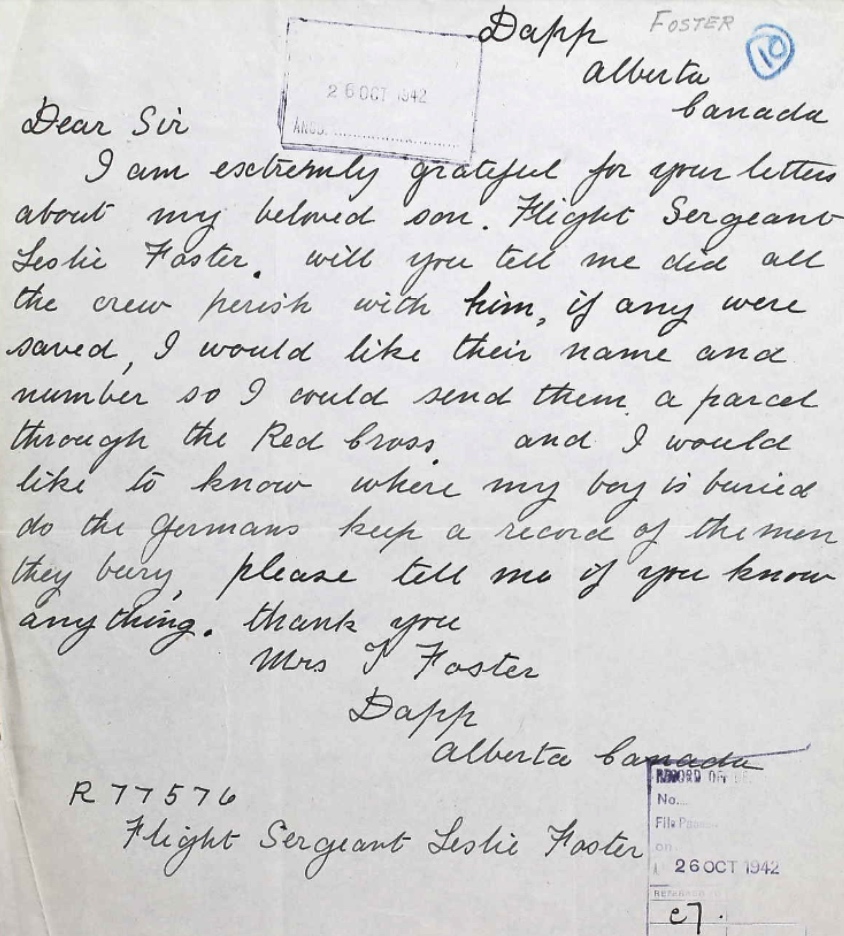 Dapp FOSTER 10
Alberta
Canada
26 OCT 1942
ANSD.
Dear Sir
I am esctremly grateful for your letters
about my beloved son. Flight Sergeant
Leslie Foster. will you tell me did all
the crew perish with him, if any were
saved, I would like their name and
number so I could send them a parcel
through the Red Cross. and I would
like to know where my boy is buried
do the Germans keep a record of the men
they bury, please tell me if you know
anything. thank you
Mrs Foster
Dapp
Alberta Canada
R 77576
Flight Sergeant Leslie Foster
RECORD OFF
No.
File
on
26 OCT 1942
e7.